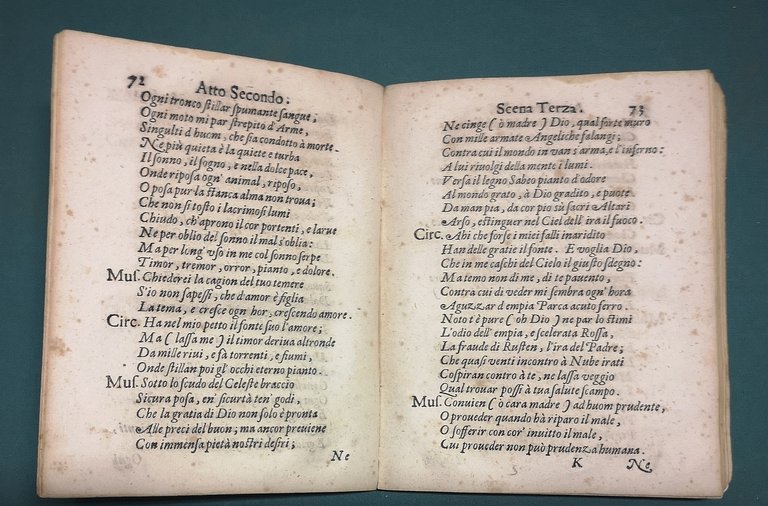 72
Atto Secondo.
Ogni tronco stillar spumante sangue;
Ogni moto mi par strepito d'Arme,
Singulti d'huom, che sia condotto à morte.
Ne più quieta è la quiete e turba
Il sonno, il sogno, e nella dolce pace,
Onde riposa ogn' animal, riposo,
O posa pur la stanca alma non trova;
Che non sì tosto i lacrimosi lumi
Chiudo, ch'aprono il cor portenti, e larue
Ne per oblio del sonno il mal s'oblia:
Ma per long' vso in me col sonno serpe
Timor, tremor, orror, pianto, e dolore.
Mus. Chiederei la cagion del tuo temere
S'io non sapessi, che d'amor è figlia
La tema, e cresce ogn' hor, crescendo amore.
Circ. Ha nel mio petto il fonte suo l'amore;
Ma ( lassa me ) il timor deriua altronde
Da mille riui, e fà torrenti, e fiumi,
Onde stillan poi gl' occhi eterno pianto.
Mus. Sotto lo scudo del Celeste braccio
Sicura posa, en' sicurtà ten' godi,
Che la gratia di Dio non solo è pronta
Alle preci del buon; ma ancor preuiene
Con immensa pietà nostri desiri;
Ne
Scena Terza.
73
Ne cinge ( ò madre ) Dio, qual forte muro
Con mille armate Angeliche falangi;
Contra cui il mondo in van s'arma, e l'inferno:
A lui riuolgi della mente i lumi.
Versa il legno Sabeo pianto d'odore
Al mondo grato, à Dio gradito, e puote
Da man pia, da cor pio sù sacri Altari
Arso, estinguer nel Ciel dell' ira il fuoco.
Circ. Ahi che forse i miei falli inaridito
Han delle gratie il fonte. E voglia Dio,
Che in me caschi del Cielo il giusto sdegno:
Ma temo non di me, di te pauento,
Contra cui di veder mi sembra ogn' hora
Aguzzar d'empia Parca acuto ferro.
Noto t'è pure ( oh Dio ) ne par lo stimi
L'odio dell' empia, e scelerata Rossa,
La fraude di Rusten, l'ira del Padre;
Che quasi venti incontro à Nube irati
Cospiran contro à te, ne lassa veggio
Qual trouar possi à tua salute scampo.
Mus. Conuien ( ò cara madre ) ad huom prudente,
O proueder quando hà riparo il male,
O sofferir con cor' inuitto il male,
Cui proueder non può prudenza humana.
K
Ne